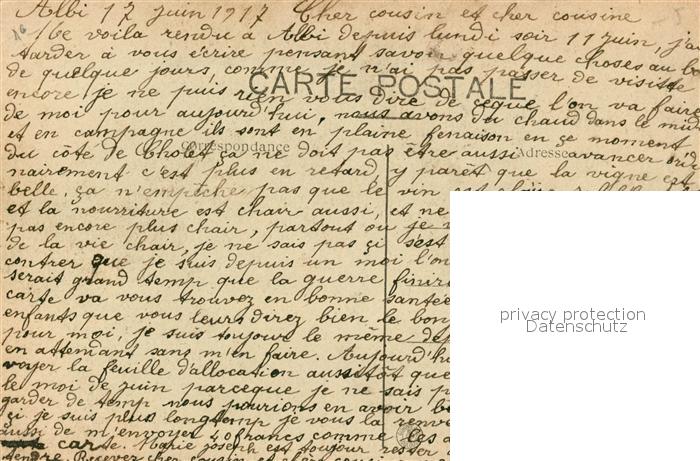 Albi 17 juin 1917 Cher cousin et cher cousine
Me voila rendu a Albi depuis lundi soir 11 juin, j'ai
tarder à vous écrire pensant savoir quelque choses au b
de quelque jours comme je n'ai pas passer de visite
CARTE POSTALE
encore je ne puis rien vous dire de ceque l'on va faire
de moi pour aujourd'hui, nous avons du chaud dans le midi
et en campagne ils sont en plaine fenaison en ce moment
Correspondance
Adresse
du côté de Cholet ça ne doit pas être aussi avancer ordi
nairement c'est plus en retard, y parêt que la vigne est
belle, ça n'empêche pas que le vin est
et la nourriture est chair aussi, et ne
pas encore plus chair, partout ou je
de la vie chair, je ne sais pas çi s'est
contrer que je suis depuis un moi l'on
serait grand temp que la guerre finir
carte va vous trouvez en bonne santée
enfants que vous leurs direz bien le bon
pour moi, je suis toujour le même dep
en attendant sans m'en faire. Aujourd'hu
voyer la feuille d'allocation aussitôt que
le moi de juin parceque je ne sais p
garder de temp nous pourions en avoir b
çi je suis plus longtemp je vous la renve
aussi de m'envoyer 40 francs comme les a
carte. Marie joseph est toujour rester
tendre. Recever cher cousin et chère cousi
privacy protection
Datenschutz